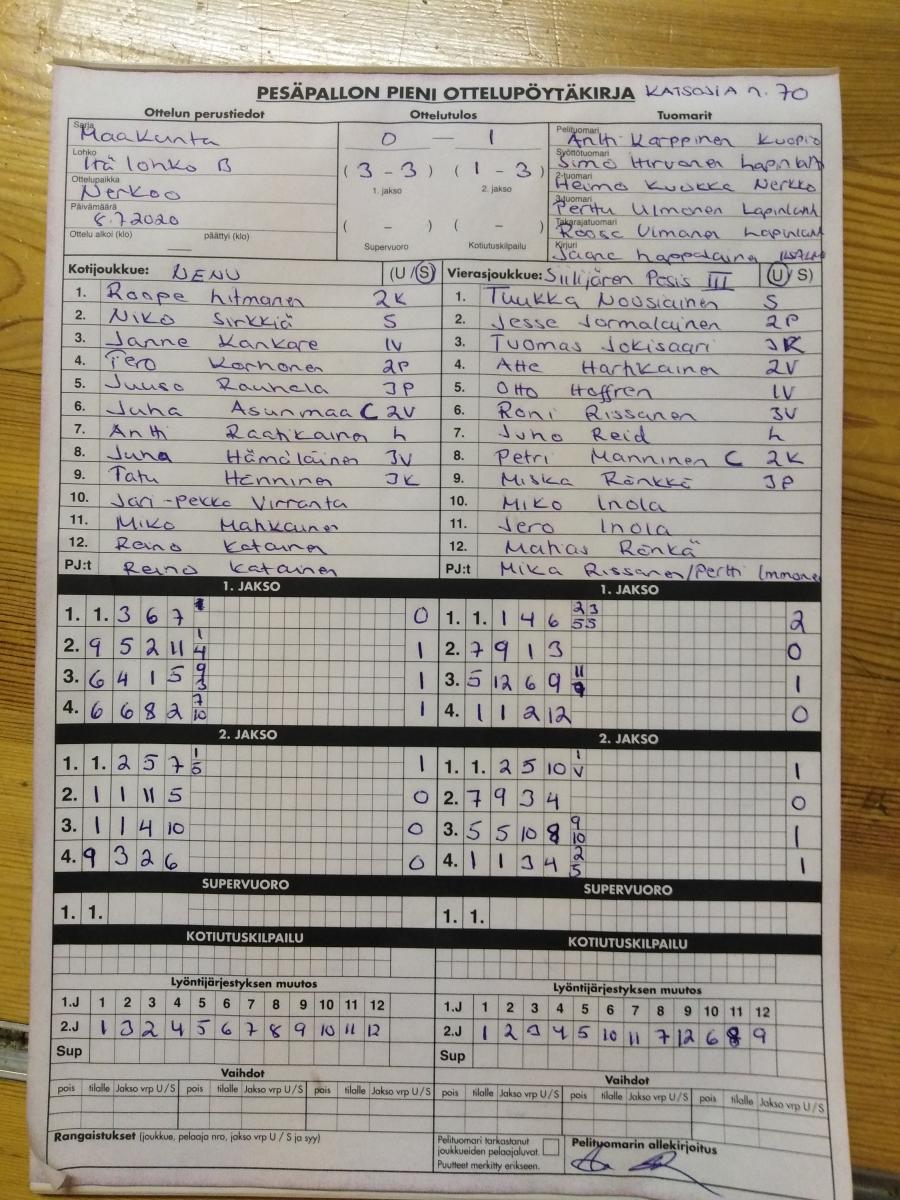 PESÄPALLON PIENI OTTELUPÖYTÄKIRJA KATSOJIA n. 70
Ottelun perustiedot Ottelutulos Tuomarit
Sarja Maakunta
Lohko Itä lohko B
Ottelupaikka Nerkoo
Päivämäärä 8.7.2020
Ottelu alkoi (klo) — päättyi (klo)
0 — 1
(3 - 3) (1 - 3)
1. jakso 2. jakso
( - ) ( - )
Supervuoro Kotiutuskilpailu
Pelituomari Antti Karppinen Kuopio
Syöttötuomari Simo Hirvonen Lapinlahti
2-tuomari Heimo Kuokka Nerkko
3-tuomari Perttu Ulmonen Lapinlahti
Takarajatuomari Ulmanen Lapinlahti
Kirjuri
Kotijoukkue: NENU (U / S)
1. Roope Hitmanen 2K
2. Niko Sirkkiä S
3. Janne Kankare IV
4. Tero Korhonen 2P
5. Juuso Rauhala 3P
6. Juha Asunmaa C 2V
7. Antti Raatikainen L
8. Juha Hämäläinen 3V
9. Tatu Hänninen 3K
10. Jari-pekka Virranta
11. Miko Mahkainen
12. Reino Katainen
PJ:t Reino Katainen
Vierasjoukkue: Siilijären Pesis III (U / S)
1. Tuukka Nousiainen S
2. Jesse Jormalainen 2P
3. Tuomas Jokisaari 3K
4. Atte Hartikainen 2V
5. Otto Hoffren IV
6. Roni Rissanen 3V
7. Juho Reid L
8. Petri Manninen C 2K
9. Miska Rönkkö 3P
10. Miko Inola
11. Jero Inola
12. Matias Rönkä
PJ:t Mika Rissanen/Pertti Immonen
1. JAKSO
1. 1. 3 6 7 0
2. 9 5 2 11 1/4 1
3. 6 4 1 5 9/3 1
4. 6 6 8 2 7/10 1
1. JAKSO
1. 1. 1 4 6 2/5 3/5 2
2. 7 9 1 3 0
3. 5 12 6 9 1
4. 1 1 2 12 0
2. JAKSO
1. 1. 2 5 7 1/5 1
2. 1 1 11 5 0
3. 1 1 4 10 0
4. 9 3 2 6 0
2. JAKSO
1. 1. 2 5 10 1/V 1
2. 7 9 3 4 0
3. 5 5 10 8 9/10 1
4. 1 1 3 4 2/5 1
SUPERVUORO
1. 1.
SUPERVUORO
1. 1.
KOTIUTUSKILPAILU
KOTIUTUSKILPAILU
Lyöntijärjestyksen muutos
1.J 1 2 3 4 5 6 7 8 9 10 11 12
2.J 1 3 2 4 5 6 7 8 9 10 11 12
Sup
Lyöntijärjestyksen muutos
1.J 1 2 3 4 5 6 7 8 9 10 11 12
2.J 1 2 3 4 5 10 11 7 12 6 8 9
Sup
Vaihdot
pois tilalle Jakso vrp U / S pois tilalle Jakso vrp U / S pois tilalle Jakso vrp U / S
Vaihdot
pois tilalle Jakso vrp U / S pois tilalle Jakso vrp U / S pois tilalle Jakso vrp U / S
Rangaistukset (joukkue, pelaaja nro, jakso vrp U / S ja syy)
Pelituomari tarkastanut
joukkueiden pelaajaluvat.
Puutteet merkitty erikseen.
Pelituomarin allekirjoitus